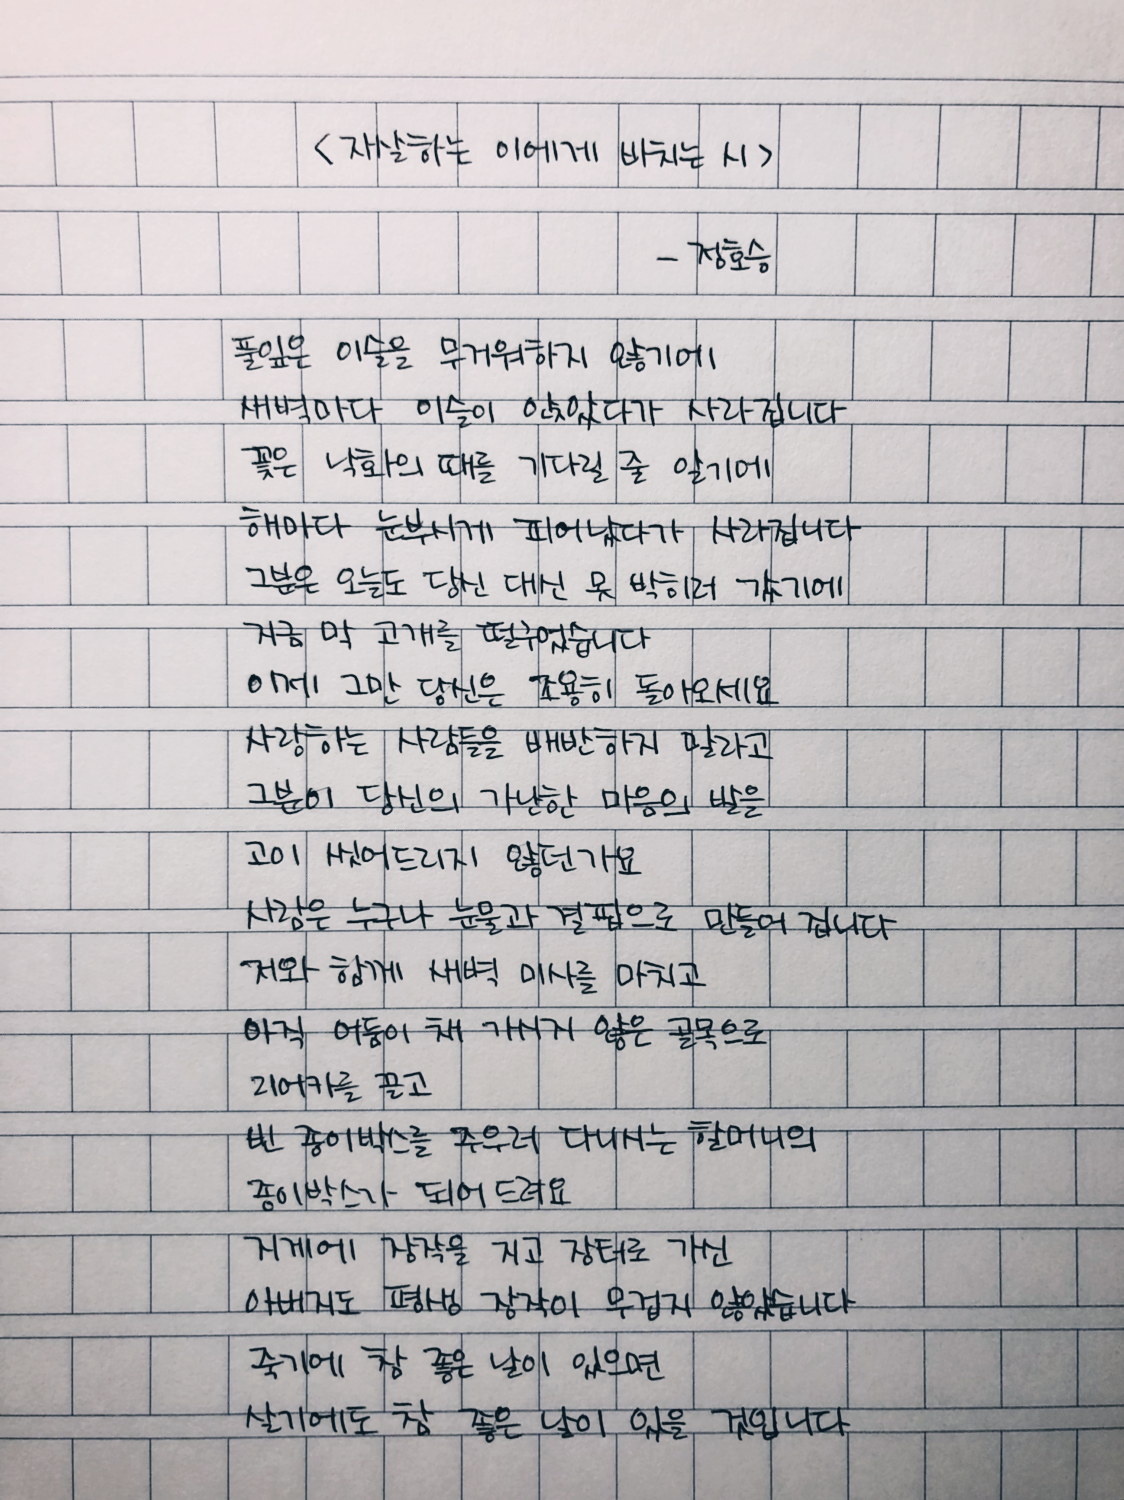 <자살하는 이에게 바치는 시>
- 정호승
풀잎은 이슬을 무거워하지 않기에
새벽마다 이슬이 앉았다가 사라집니다
꽃은 낙화의 때를 기다릴 줄 알기에
해마다 눈부시게 피어났다가 사라집니다
그분은 오늘도 당신 대신 못 박히러 갔기에
지금 막 고개를 떨구었습니다
이제 그만 당신은 조용히 돌아오세요
사랑하는 사람들을 배반하지 말라고
그분이 당신의 가난한 마음의 발을
고이 씻어드리지 않던가요
사람은 누구나 눈물과 결핍으로 만들어 집니다
저와 함께 새벽 미사를 마치고
아직 어둠이 채 가시지 않은 골목으로
리어카를 끌고
빈 종이박스를 주우러 다니시는 할머니의
종이박스가 되어 드려요
지게에 장작을 지고 장터로 가신
아버지도 평생 장작이 무겁지 않았습니다
죽기에 참 좋은 날이 있으면
살기에도 참 좋은 날이 있을 것입니다